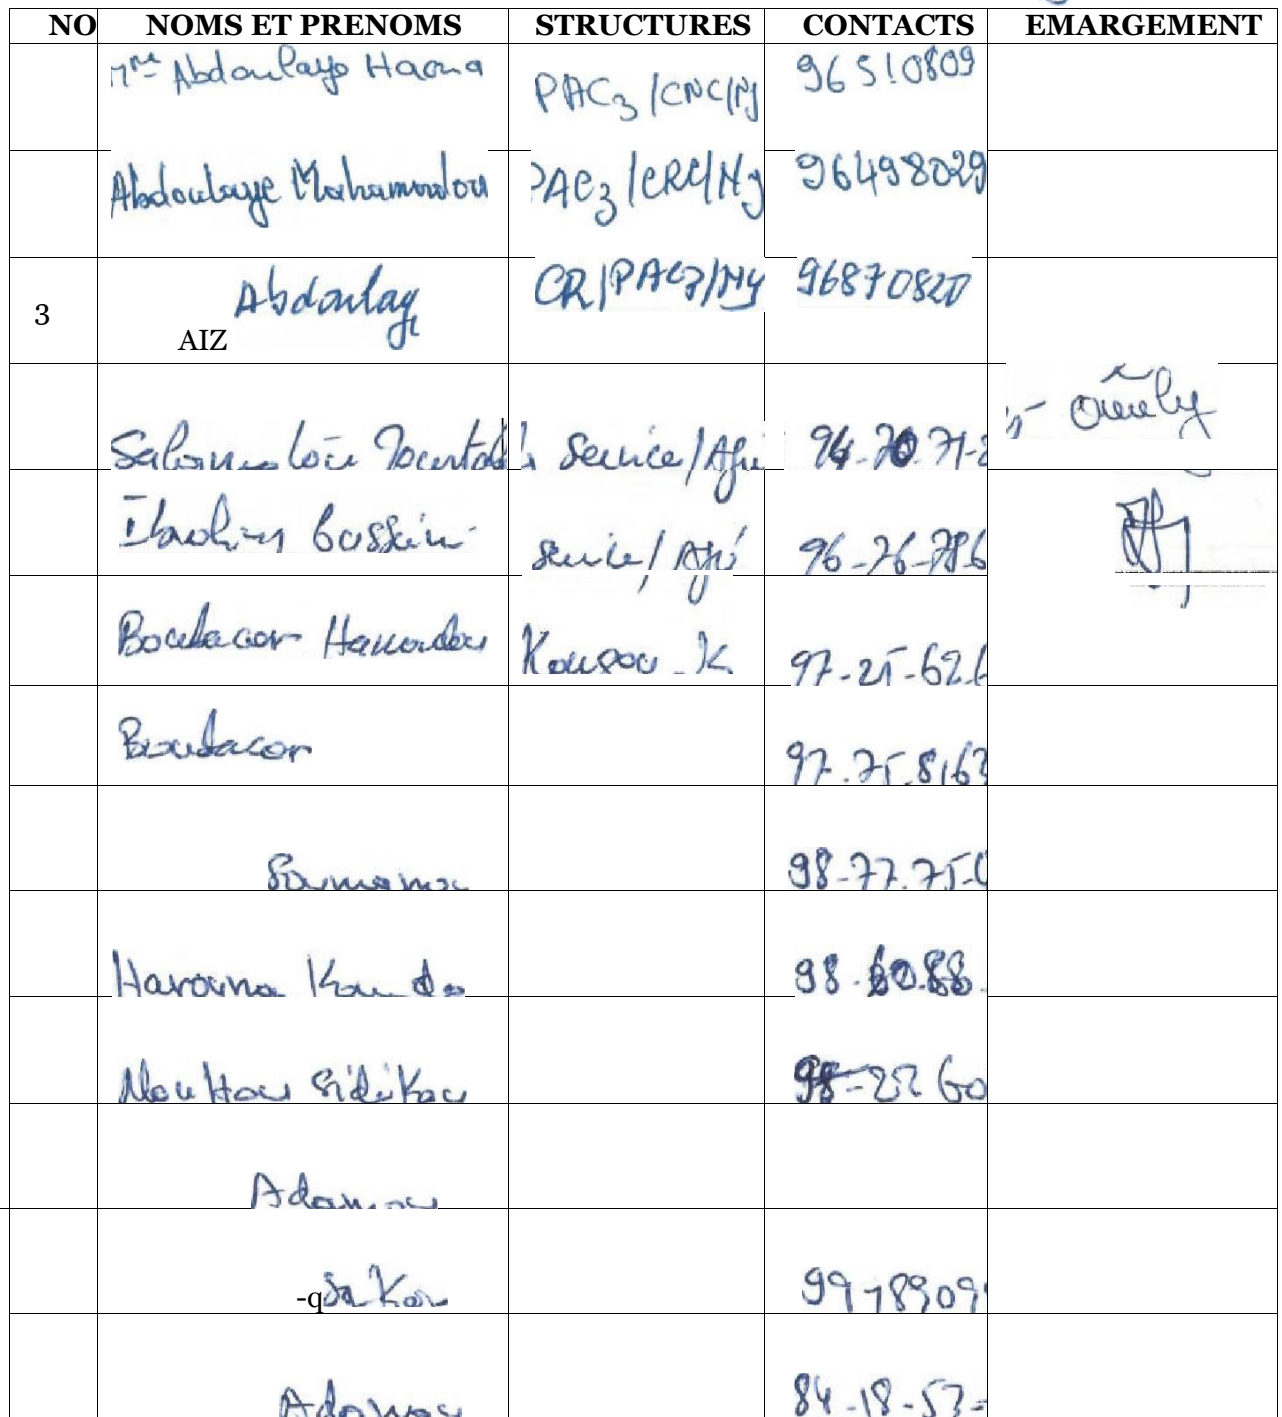 NO NOMS ET PRENOMS STRUCTURES CONTACTS EMARGEMENT
Mme Abdoulaye Haoua PAC3/CNC/Ny 96510809
Abdoulaye Mahamadou PAC3/CRC/Ny 96498029
3 Abdoulay CR/PAC3/Ny 96870820
AIZ
Service/Agri 70.71-
Ibrahim service/Agri 96-76-786
Boubacar Hamadou Kousou-K 97-25-62.6
Boubacar 97.75.8163
Soumana 98-77.75-0
Harouna Kan do 98.60.88.
Nouhou Sidikou 98-22 60
Adamou
-q Sa Kou 9978909
Adamou 84-18-53-